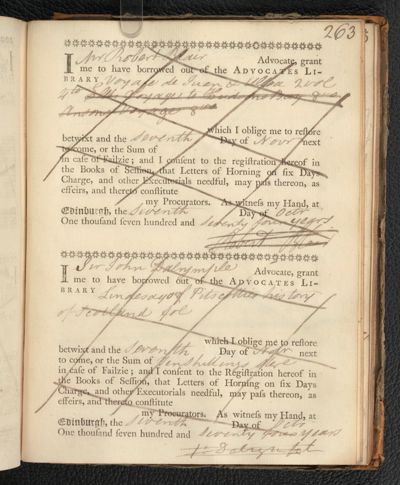 263
I Mr Robert Advocate, grant
me to have borrowed out of the ADVOCATES LI-
BRARY Voyage de Juan & Ulloa 2 vol
4to Voyages to Hudsons Bay 8vo
Ansons Voyage 8vo
which I oblige me to reſtore
betwixt and the Seventh Day of Novr next
to come, or the Sum of
in caſe of Failzie; and I conſent to the regiſtration hereof in
the Books of Seſſion, that Letters of Horning on ſix Days
Charge, and other Executorials needful, may paſs thereon, as
effeirs, and thereto conſtitute
my Procurators. As witneſs my Hand, at
Edinburgh, the Seventh Day of Octr
One thouſand ſeven hundred and seventy four years
Robert
I Sir John Dalrymple Advocate, grant
me to have borrowed out of the ADVOCATES LI-
BRARY Lindesay of Pitscotties history
of Scotland fol
which I oblige me to reſtore
betwixt and the Seventh Day of Novr next
to come, or the Sum of Ten shillings
in caſe of Failzie; and I conſent to the Regiſtration hereof in
the Books of Seſſion, that Letters of Horning on ſix Days
Charge, and other Executorials needful, may paſs thereon, as
effeirs, and thereto conſtitute
my Procurators. As witneſs my Hand, at
Edinburgh, the Seventh Day of Octr
One thouſand ſeven hundred and seventy four years
Jo: Dalrymple